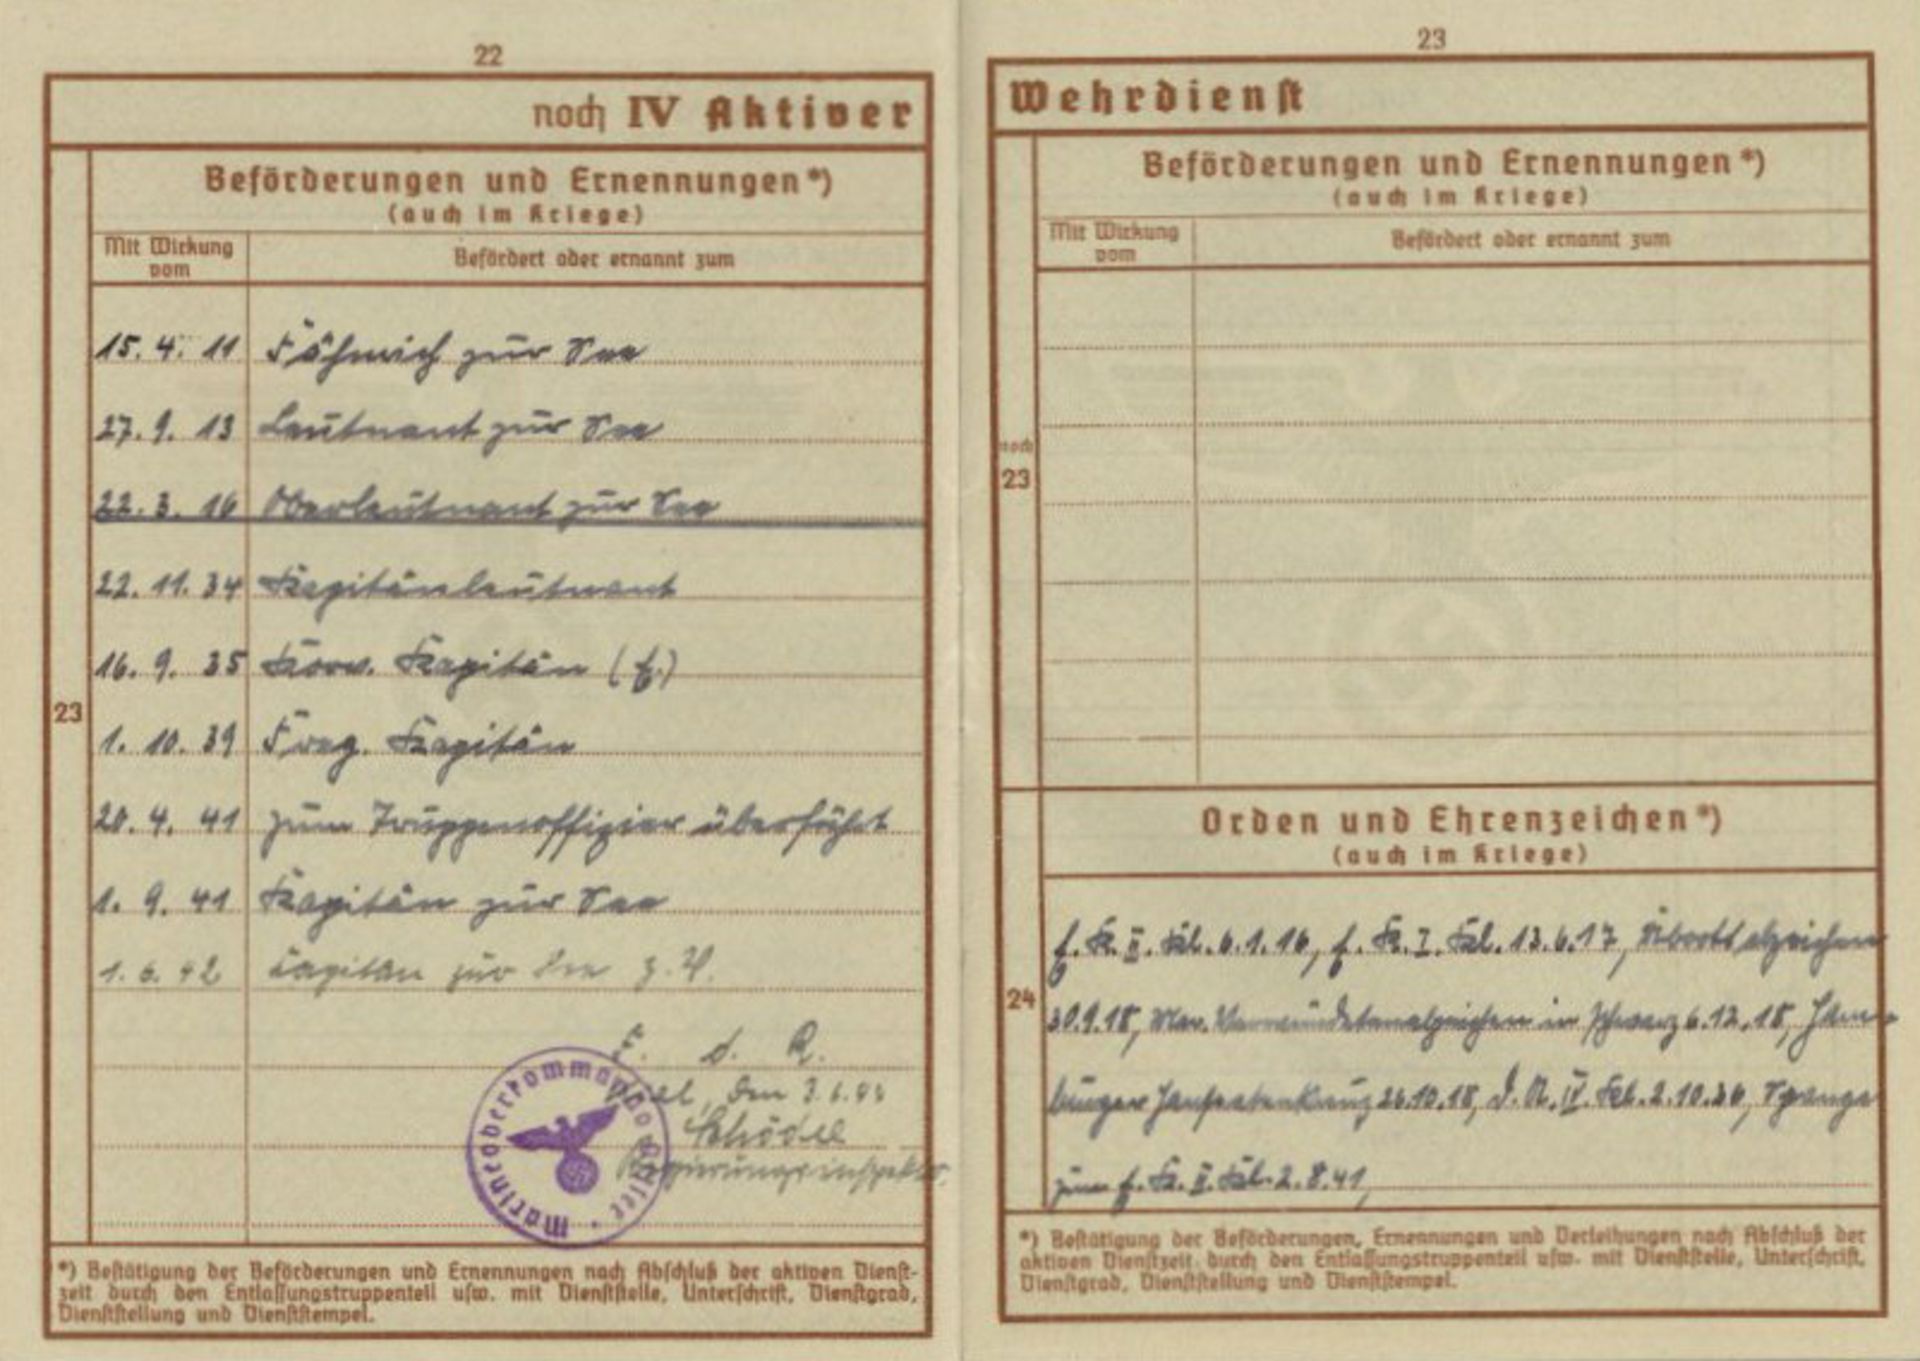 22
noch IV Aktiver
Beförderungen und Ernennungen*)
(auch im Kriege)
Mit Wirkung vom
Befördert oder ernannt zum
15. 4. 11 Fähnrich zur See
27. 9. 13 Leutnant zur See
22. 3. 16 Oberleutnant zur See
22. 11. 34 Kapitänleutnant
16. 9. 35 Korv. Kapitän (E.)
23
1. 10. 39 Freg. Kapitän
20. 4. 41 zum Truppenoffizier überführt
1. 9. 41 Kapitän zur See
1. 6. 42 Kapitän zur See z. V.
F. d. R.
Kiel, den 3.6.
Regierungsinspektor.
Marineoberkommando Ostsee
*) Bestätigung der Beförderungen und Ernennungen nach Abschluß der aktiven Dienst-
zeit durch den Entlassungstruppenteil usw. mit Dienststelle, Unterschrift, Dienstgrad,
Dienststellung und Dienststempel.
23
Wehrdienst
Beförderungen und Ernennungen*)
(auch im Kriege)
Mit Wirkung vom
Befördert oder ernannt zum
noch
23
Orden und Ehrenzeichen*)
(auch im Kriege)
E. K. II. Kl. 6.1.16, E. K. I. Kl. 13.6.17, Ubootsabzeichen
24
30.9.18, Mar. Verwundetenabzeichen in schwarz 6.12.18, Ham-
burger Hanseatenkreuz 26.10.18, D. A. IV. Kl. 2.10.36, Spange
zum E. K. II. Kl. 2.8.41,
*) Bestätigung der Beförderungen, Ernennungen und Verleihungen nach Abschluß der
aktiven Dienstzeit durch den Entlassungstruppenteil usw. mit Dienststelle, Unterschrift,
Dienstgrad, Dienststellung und Dienststempel.